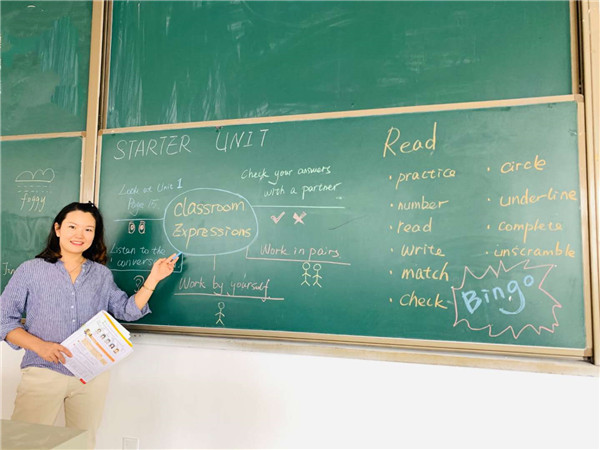 STARTER UNIT
foggy
Look at Unit 1
Page 15.
Listen to the
conversa
classroom
Expressions
Check your answers
with a partner
Work in pairs.
Work by yourself.
Read
· practice
· number
· read
· write
· match
· check
· circle
· underline
· complete
· unscramble
Bingo